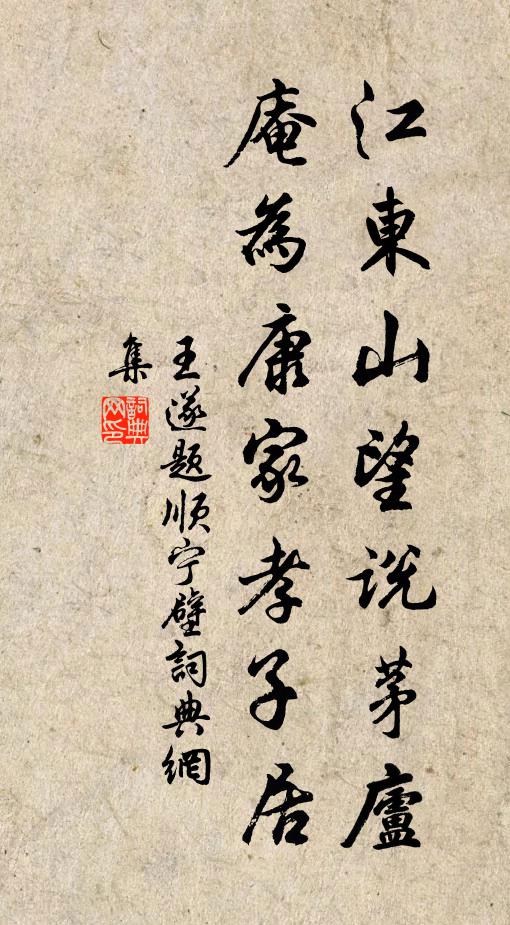 江東山望説茅廬
庵為康家孝子居
王遂題順宁壁詞典網
集
詞典網印